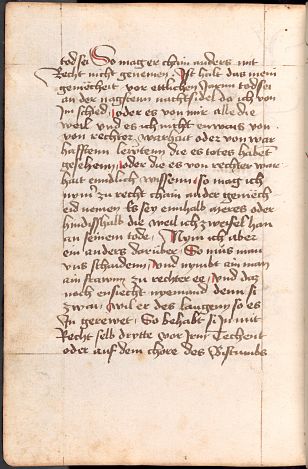 tod sei So mag er chain anders mit
Recht nicht genemen. Ist halt das mein
gemëcheit vor ettlichen Jaren tod sei
an der nagsten nachtsidel do ich von
Im schied oder es von mir alle die
weil vnd es ich nicht erwars von
von rechter warhait oder von war
hafften lewten die es totes habet
gesehenn, oder die es von rechter war
hait enndlich wissenn, so mag ich
nym̄ zu recht chain ander gemëch
eid nemen Es sey ennhalb meres oder
hindisshalb die weil ich zweifel han
an seinem tode, Nym ich aber
ein anders darüber So müs man
vns schaiden, vnd nymbt ain man
ain frawn zu rechter ee, vnd dar
nach ensiecht nyemand denn si
zway, wil er des laugen so es
In gerewet, So behabt si In mit
Recht selb drytte vor Irm Techent
oder auf dem chore des Bistumbs